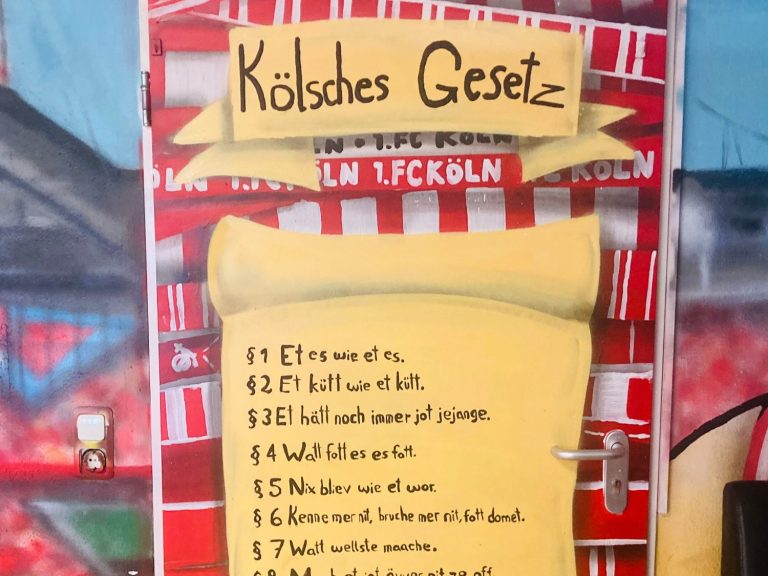 Kölsches Gesetz
LN • 1.FC KÖLN
ÖLN 1.FC KÖLN 1.FC KÖLN KÖLN
§ 1 Et es wie et es.
§ 2 Et kütt wie et kütt.
§ 3 Et hätt noch immer jot jejange.
§ 4 Watt fott es es fott.
§ 5 Nix bliev wie et wor.
§ 6 Kenne mer nit, bruche mer nit, fott domet.
§ 7 Watt wellste maache.